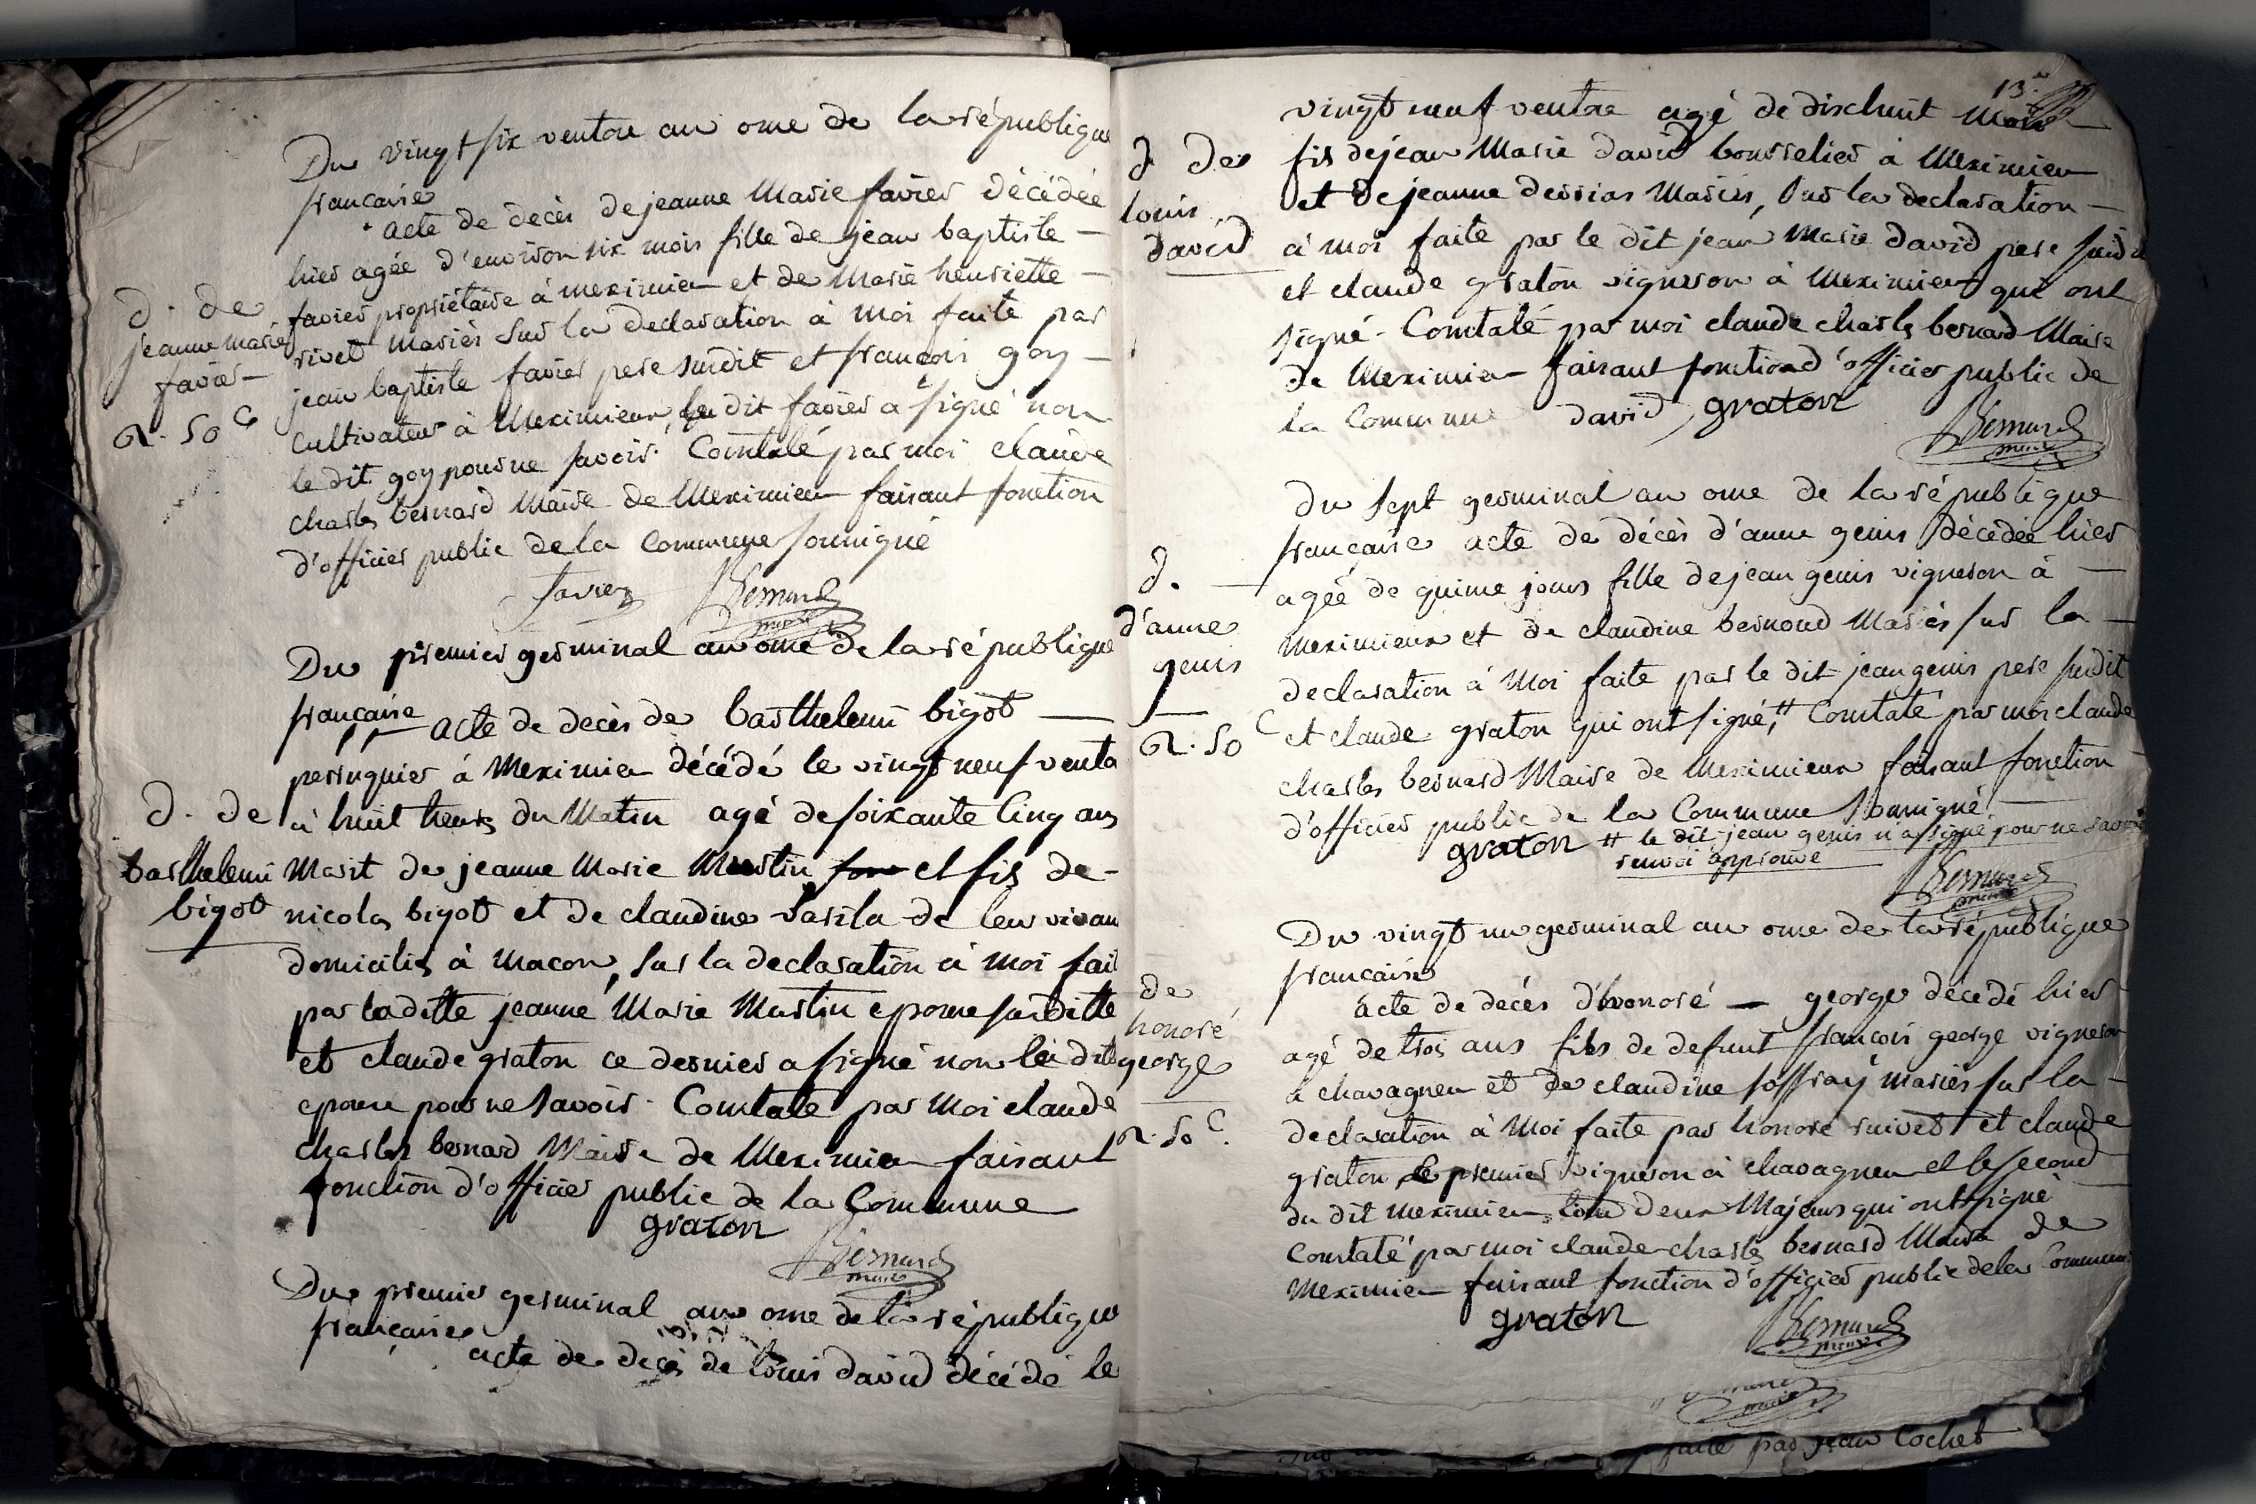 Du vingt six ventose an onze de la république
française
acte de decès de jeanne Marie favier décédée
hier agée d'environ six mois fille de jean baptiste
favier propriétaire à meximieu et de Marie henriette
rivet Mariés sur la declaration à moi faite par
jean baptiste favier pere susdit et françois goy
cultivateur à Meximieux, le dit favier a signé non
le dit goy pour ne savoir. Constaté par moi claude
charles bernard Maire de Meximieu faisant fonction
d'officier public de la Commune soussigné
favier Bernard
maire
d. de
jeanne marie
favier
R. 50 c
Du premier germinal an onze de la république
française
acte de decès de barthelemi bigot
perruquier à Meximieu décédé le vingt neuf vento
à huit heures du Matin agé de soixante cinq ans
Marit de jeanne Marie Martin et fis de
nicolas bigot et de claudine de leur vivan
domicilies à macon, sur la declaration à moi fait
par laditte jeanne Marie Martin epouse susditte
et claude graton ce dernier a signé non la dite
epouse pour ne savoir. Constaté par Moi claude
charles bernard Maire de Meximieu faisant
fonction d'officier public de la Commune
graton
Bernard
maire
d. de
barthelemi
bigot
Du premier germinal an onze de la république
française
acte de decès de louis david décédé le
13.e
vingt neuf ventose agé de dix huit Mois
fis de jean Marie david bourrelier à Meximieu
et de jeanne Mariés, sur la declaration
à moi faite par le dit jean Marie david pere susd
et claude graton vigneron à Meximieux qui ont
signé. Constaté par moi claude charles bernard Maire
de Meximieu faisant fonction d'officier public de
la Commune david graton
Bernard
maire
d de
louis
david
Du sept germinal an onze de la république
française acte de décès d'anne genis décédée hier
agée de quinze jours fille de jean genis vigneron à
Meximieux et de claudine bernoud Mariés sur la
declaration à Moi faite par le dit jean genis pere susdit
et claude graton qui ont signé, # Constaté par moi claude
charles bernard Maire de Meximieux faisant fonction
d'officier public de la Commune soussigné.
graton # le dit jean genis n'a signé pour ne savoir
renvoi approuvé
Bernard
maire
d.
d'anne
genis
R. 50 c
Du vingt un germinal an onze de la république
française
acte de decès d'honoré george décédé hier
agé de trois ans fils de defunt françois george vigneron
à chavagneu et de claudine joffray mariés sur la
declaration à Moi faite par honoré ruivet et claude
graton, le premier vigneron à chavagneu et le second
du dit meximieu, tous deux Majeurs qui ont signé
Constaté par moi claude charles bernard Maire de
Meximieu faisant fonction d'officier public de la Commune
graton
Bernard
maire
de
honoré
george
R. 50 c.
maire
faite par jean Cochet